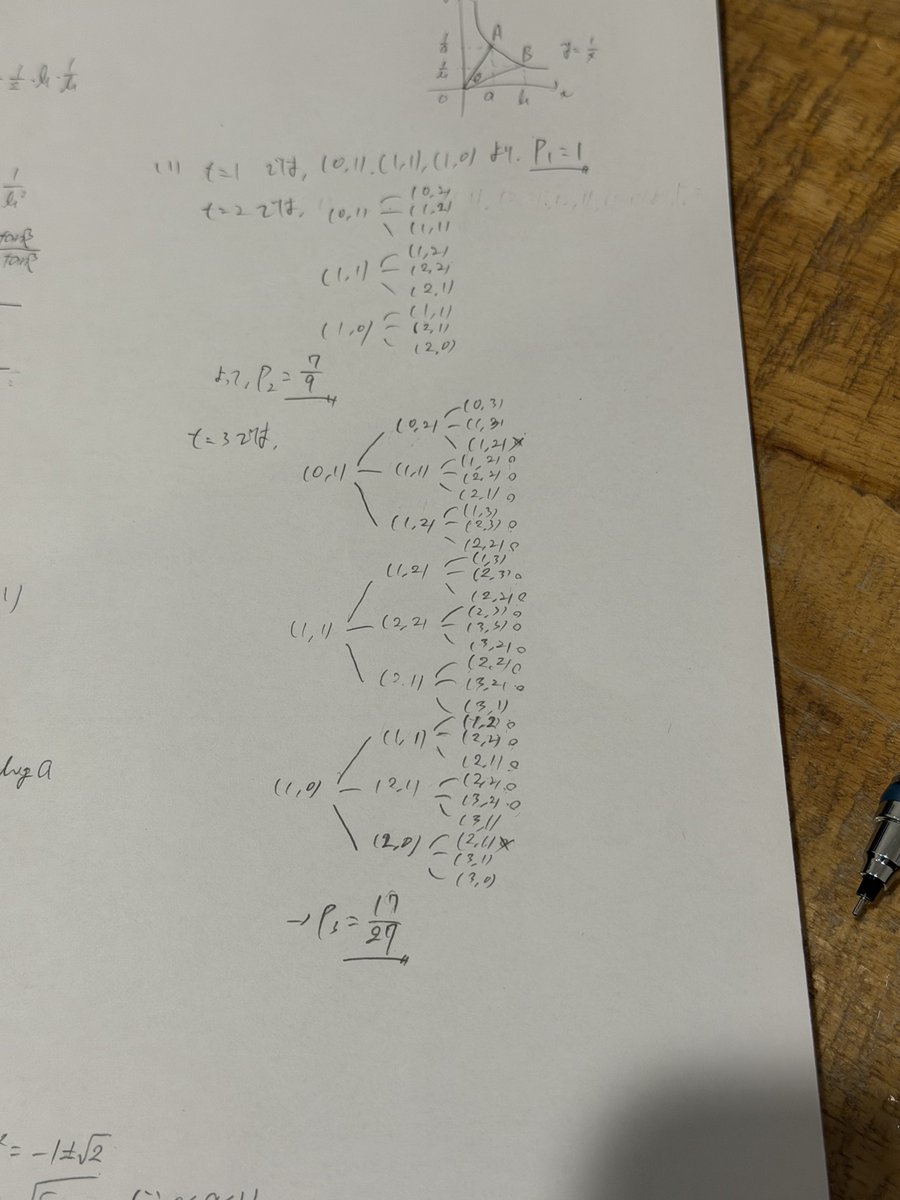 1/2・b・1/b
1/b²
tanβ
tanβ
1)
log a
² = -1±√2
1/a
1/b
A
B
y=1/x
θ
0 a b x
(1) t=1では, (0,1), (1,1), (1,0) より, P₁=1
t=2では, (0,1) (0,2)
(1,2)
(1,1)
(1,1) (1,2)
(2,2)
(2,1)
(1,0) (1,1)
(2,1)
(2,0)
よって, P₂=7/9
t=3では,
(0,1) (0,2) (0,3)
(1,3)
(1,2)×
(1,1) (1,2)○
(2,2)○
(2,1)○
(1,2) (1,3)
(2,3)○
(2,2)○
(1,1) (1,2) (1,3)
(2,3)○
(2,2)○
(2,2) (2,3)○
(3,3)○
(3,2)○
(2,1) (2,2)○
(3,2)○
(3,1)
(1,0) (1,1) (1,2)○
(2,2)○
(2,1)○
(2,1) (2,2)○
(3,2)○
(3,1)
(2,0) (2,1)×
(3,1)
(3,0)
→P₃=17/27